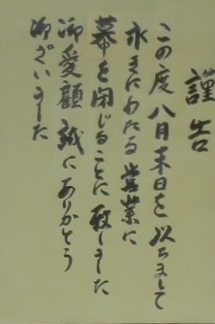 謹告
この度八月末日を以ちまして
永きにわたる営業に
幕を閉じることに致しました
御愛顧誠にありがとう
御ざいました